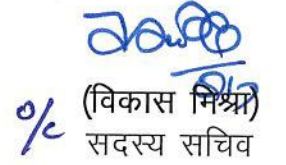 o/c (विकास मिश्रा)
सदस्य सचिव